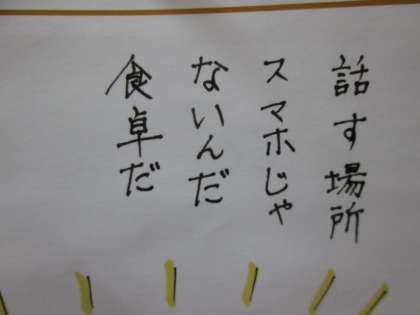 話す場所
スマホじゃ
ないんだ
食卓だ